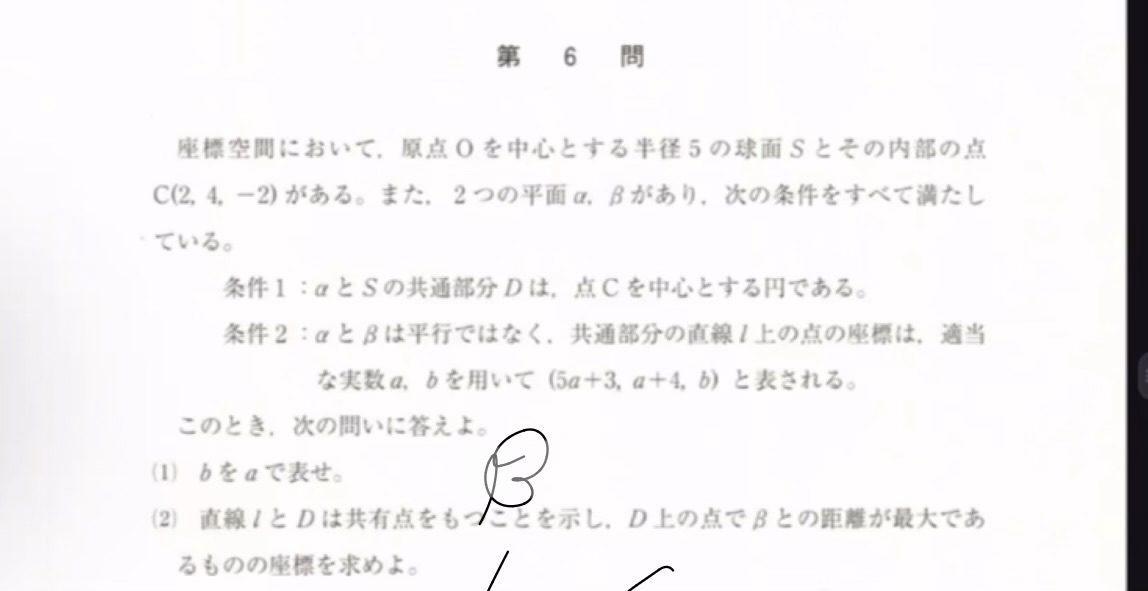 第 6 問
座標空間において，原点 O を中心とする半径 5 の球面 S とその内部の点
C(2, 4, −2) がある。また，2 つの平面 α, β があり，次の条件をすべて満たし
ている。
条件 1 : α と S の共通部分 D は，点 C を中心とする円である。
条件 2 : α と β は平行ではなく，共通部分の直線 l 上の点の座標は，適当
な実数 a, b を用いて (5a+3, a+4, b) と表される。
このとき，次の問いに答えよ。
(1) b を a で表せ。
β
(2) 直線 l と D は共有点をもつことを示し，D 上の点で β との距離が最大であ
るものの座標を求めよ。